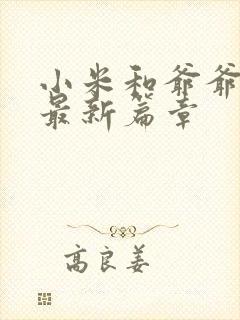 小米和爷爷
最新篇章
高良姜